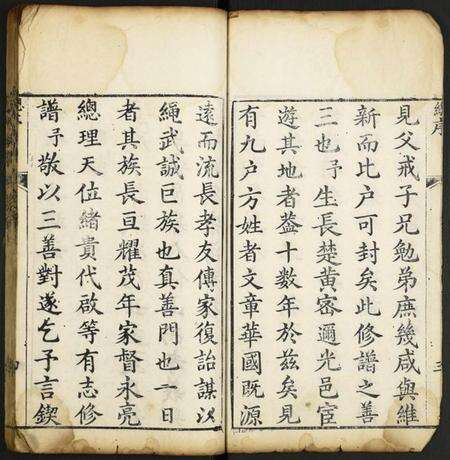 見父戒子兄勉弟庶幾咸與維
新而比户可封矣此修譜之善
三也予生長楚黄密邇光邑宦
遊其地者葢十數年於兹矣見
有九户方姓者文章華國既源
遠而流長孝友傳家復詒謀以
繩武誠巨族也真善門也一日
者其族長亘耀茂年家督永亮
總理天位緒貴代啟等有志修
譜予敬以三善對遂乞予言鍥
總序
三